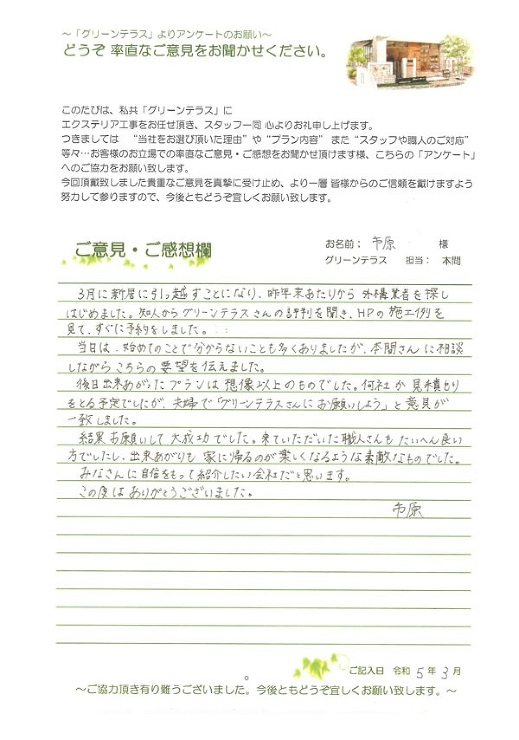 ～「グリーンテラス」よりアンケートのお願い～
どうぞ 率直なご意見をお聞かせください。
このたびは、私共「グリーンテラス」に
エクステリア工事をお任せ頂き、スタッフ一同 心よりお礼申し上げます。
つきましては “当社をお選び頂いた理由” や “プラン内容” また “スタッフや職人のご対応”
等々…お客様のお立場での率直なご意見・ご感想をお聞かせ頂けます様、こちらの「アンケート」
へのご協力をお願い致します。
今回頂戴致しました貴重なご意見を真摯に受け止め、より一層 皆様からのご信頼を戴けますよう
努力して参りますので、今後ともどうぞ宜しくお願い致します。
ご意見・ご感想欄
お名前： 市原 様
グリーンテラス 担当： 本間
3月に新居に引っ越すことになり、昨年末あたりから 外構業者を探し
はじめました。知人からグリーンテラスさんの評判を聞き、HPの施工例を
見て、すぐに予約をしました。
当日は、始めてのことで分からないことも多くありましたが、本間さんに相談
しながらこちらの要望を伝えました。
後日出来あがったプランは想像以上のものでした。何社か見積もり
をとる予定でしたが、夫婦で「グリーンテラスさんにお願いしよう」と意見が
一致しました。
結果お願いして大成功でした。来ていただいた職人さんもたいへん良い
方でしたし、出来あがりも家に帰るのが楽しくなるような素敵なものでした。
みなさんに自信をもって紹介したい会社だと思います。
この度はありがとうございました。
市原
ご記入日 令和 5年 3月
～ご協力頂き有り難うございました。今後ともどうぞ宜しくお願い致します。～